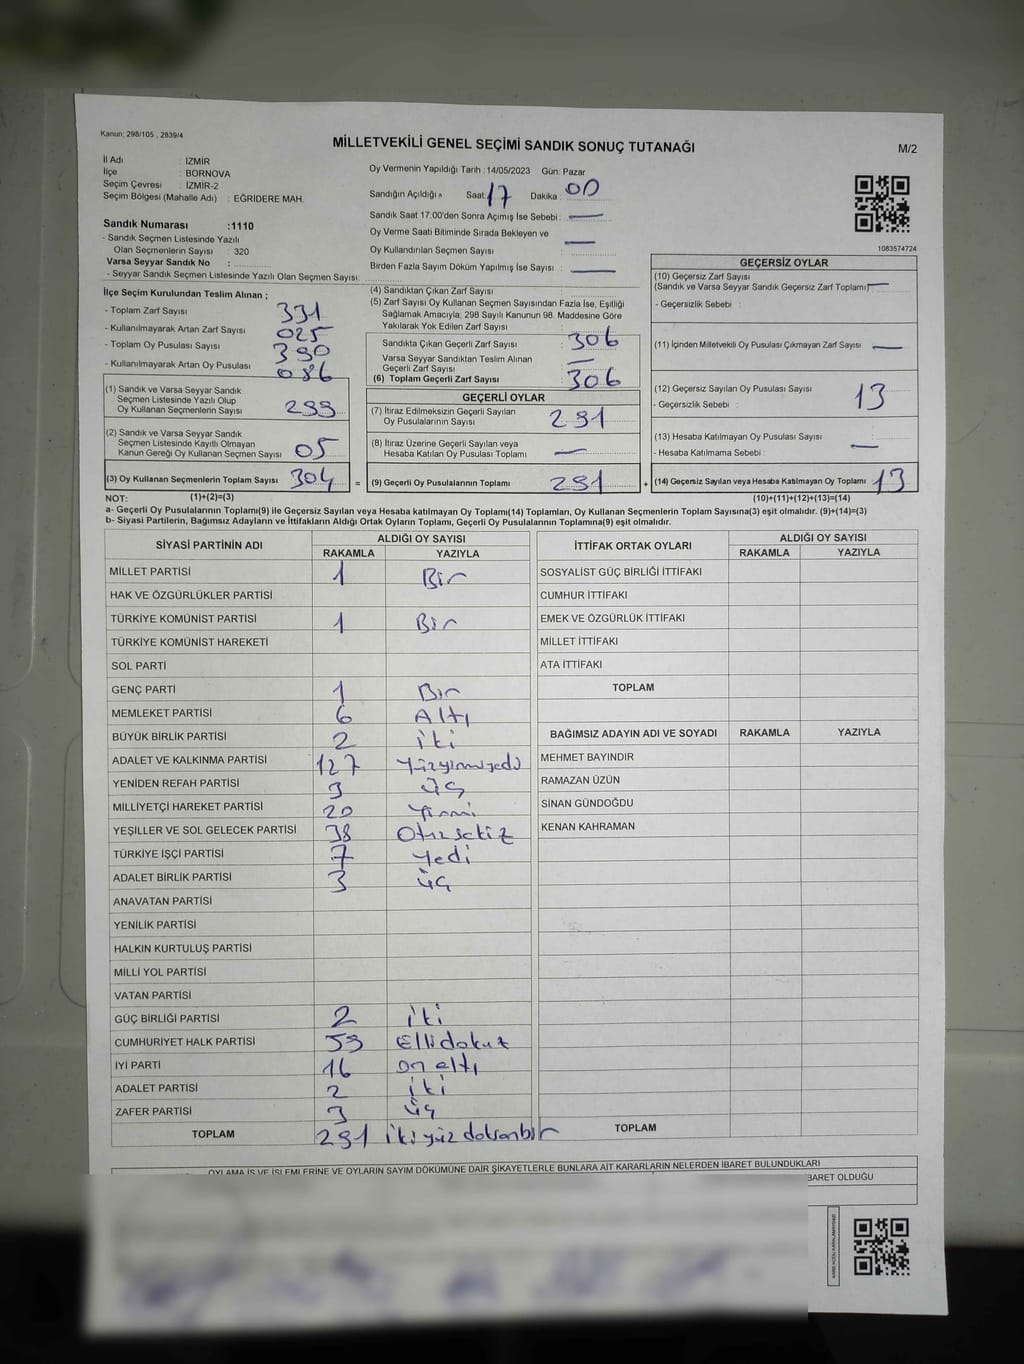 Kanun: 298/105 , 2839/4
MİLLETVEKİLİ GENEL SEÇİMİ SANDIK SONUÇ TUTANAĞI
M/2
İl Adı : İZMİR
İlçe : BORNOVA
Seçim Çevresi : İZMİR-2
Seçim Bölgesi (Mahalle Adı) : EĞRİDERE MAH.
Oy Vermenin Yapıldığı Tarih : 14/05/2023 Gün: Pazar
Sandığın Açıldığı Saat 17 Dakika : 00
Sandık Saat 17.00'den Sonra Açımış İse Sebebi : —
Oy Verme Saati Bitiminde Sırada Bekleyen ve
Oy Kullandırılan Seçmen Sayısı : —
Birden Fazla Sayım Döküm Yapılmış İse Sayısı : —
1083574724
Sandık Numarası :1110
- Sandık Seçmen Listesinde Yazılı
Olan Seçmenlerin Sayısı : 320
Varsa Seyyar Sandık No :
- Seyyar Sandık Seçmen Listesinde Yazılı Olan Seçmen Sayısı:
İlçe Seçim Kurulundan Teslim Alınan ;
- Toplam Zarf Sayısı : 331
- Kullanılmayarak Artan Zarf Sayısı : 025
- Toplam Oy Pusulası Sayısı : 390
- Kullanılmayarak Artan Oy Pusulası : 086
(1) Sandık ve Varsa Seyyar Sandık
Seçmen Listesinde Yazılı Olup
Oy Kullanan Seçmenlerin Sayısı : 299
(2) Sandık ve Varsa Seyyar Sandık
Seçmen Listesinde Kayıtlı Olmayan
Kanun Gereği Oy Kullanan Seçmen Sayısı : 05
(3) Oy Kullanan Seçmenlerin Toplam Sayısı : 304
(1)+(2)=(3)
(4) Sandıktan Çıkan Zarf Sayısı :
(5) Zarf Sayısı Oy Kullanan Seçmen Sayısından Fazla İse, Eşitliği
Sağlamak Amacıyla; 298 Sayılı Kanunun 98. Maddesine Göre
Yakılarak Yok Edilen Zarf Sayısı :
Sandıkta Çıkan Geçerli Zarf Sayısı : 306
Varsa Seyyar Sandıktan Teslim Alınan
Geçerli Zarf Sayısı : —
(6) Toplam Geçerli Zarf Sayısı : 306
GEÇERLİ OYLAR
(7) İtiraz Edilmeksizin Geçerli Sayılan
Oy Pusulalarının Sayısı : 291
(8) İtiraz Üzerine Geçerli Sayılan veya
Hesaba Katılan Oy Pusulası Toplamı : —
= (9) Geçerli Oy Pusulalarının Toplamı : 291
GEÇERSİZ OYLAR
(10) Geçersiz Zarf Sayısı
(Sandık ve Varsa Seyyar Sandık Geçersiz Zarf Toplamı) —
- Geçersizlik Sebebi :
(11) İçinden Milletvekili Oy Pusulası Çıkmayan Zarf Sayısı : —
(12) Geçersiz Sayılan Oy Pusulası Sayısı : 13
- Geçersizlik Sebebi :
(13) Hesaba Katılmayan Oy Pusulası Sayısı : —
- Hesaba Katılmama Sebebi :
+ (14) Geçersiz Sayılan veya Hesaba Katılmayan Oy Toplamı : 13
(10)+(11)+(12)+(13)=(14)
NOT:
a- Geçerli Oy Pusulalarının Toplamı(9) ile Geçersiz Sayılan veya Hesaba katılmayan Oy Toplamı(14) Toplamları, Oy Kullanan Seçmenlerin Toplam Sayısına(3) eşit olmalıdır. (9)+(14)=(3)
b- Siyasi Partilerin, Bağımsız Adayların ve İttifakların Aldığı Ortak Oyların Toplamı, Geçerli Oy Pusulalarının Toplamına(9) eşit olmalıdır.
SİYASİ PARTİNİN ADI ALDIĞI OY SAYISI
RAKAMLA YAZIYLA
MİLLET PARTİSİ 1 Bir
HAK VE ÖZGÜRLÜKLER PARTİSİ
TÜRKİYE KOMÜNİST PARTİSİ 1 Bir
TÜRKİYE KOMÜNİST HAREKETİ
SOL PARTİ
GENÇ PARTİ 1 Bir
MEMLEKET PARTİSİ 6 Altı
BÜYÜK BİRLİK PARTİSİ 2 iki
ADALET VE KALKINMA PARTİSİ 127 Yüzyirmiyedi
YENİDEN REFAH PARTİSİ 3 Üç
MİLLİYETÇİ HAREKET PARTİSİ 20 Yirmi
YEŞİLLER VE SOL GELECEK PARTİSİ 38 Otuzsekiz
TÜRKİYE İŞÇİ PARTİSİ 7 Yedi
ADALET BİRLİK PARTİSİ 3 üç
ANAVATAN PARTİSİ
YENİLİK PARTİSİ
HALKIN KURTULUŞ PARTİSİ
MİLLİ YOL PARTİSİ
VATAN PARTİSİ
GÜÇ BİRLİĞİ PARTİSİ 2 iki
CUMHURİYET HALK PARTİSİ 59 Ellidokuz
İYİ PARTİ 16 on altı
ADALET PARTİSİ 2 iki
ZAFER PARTİSİ 3 üç
TOPLAM 291 ikiyüz doksanbir
İTTİFAK ORTAK OYLARI ALDIĞI OY SAYISI
RAKAMLA YAZIYLA
SOSYALİST GÜÇ BİRLİĞİ İTTİFAKI
CUMHUR İTTİFAKI
EMEK VE ÖZGÜRLÜK İTTİFAKI
MİLLET İTTİFAKI
ATA İTTİFAKI
TOPLAM
BAĞIMSIZ ADAYIN ADI VE SOYADI RAKAMLA YAZIYLA
MEHMET BAYINDIR
RAMAZAN ÜZÜN
SİNAN GÜNDOĞDU
KENAN KAHRAMAN
TOPLAM
OYLAMA İŞ VE İŞLEMLERİNE VE OYLARIN SAYIM DÖKÜMÜNE DAİR ŞİKAYETLERLE BUNLARA AİT KARARLARIN NELERDEN İBARET BULUNDUKLARI
BARET OLDUĞU